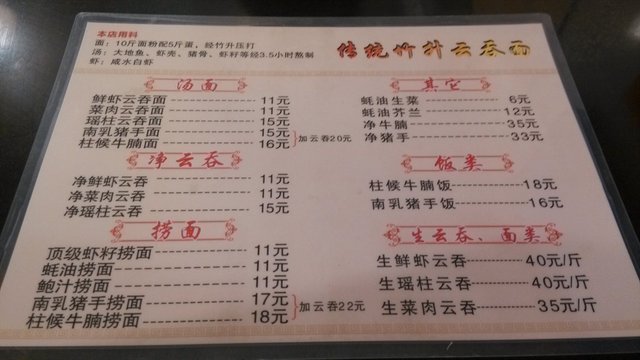 本店用料
面：10斤面粉配5斤蛋，经竹升压打
汤：大地鱼、虾壳、猪骨、虾籽等经3.5小时熬制
虾：咸水白虾
传统竹升云吞面
汤面
鲜虾云吞面 11元
菜肉云吞面 11元
瑶柱云吞面 15元
南乳猪手面 15元
柱候牛腩面 16元
加云吞20元
净云吞
净鲜虾云吞 11元
净菜肉云吞 11元
净瑶柱云吞 15元
捞面
顶级虾籽捞面 11元
蚝油捞面 11元
鲍汁捞面 11元
南乳猪手捞面 17元
柱候牛腩捞面 18元
加云吞22元
其它
蚝油生菜 6元
蚝油芥兰 12元
净牛腩 35元
净猪手 33元
饭类
柱候牛腩饭 18元
南乳猪手饭 16元
生云吞、面类
生鲜虾云吞 40元/斤
生瑶柱云吞 40元/斤
生菜肉云吞 35元/斤